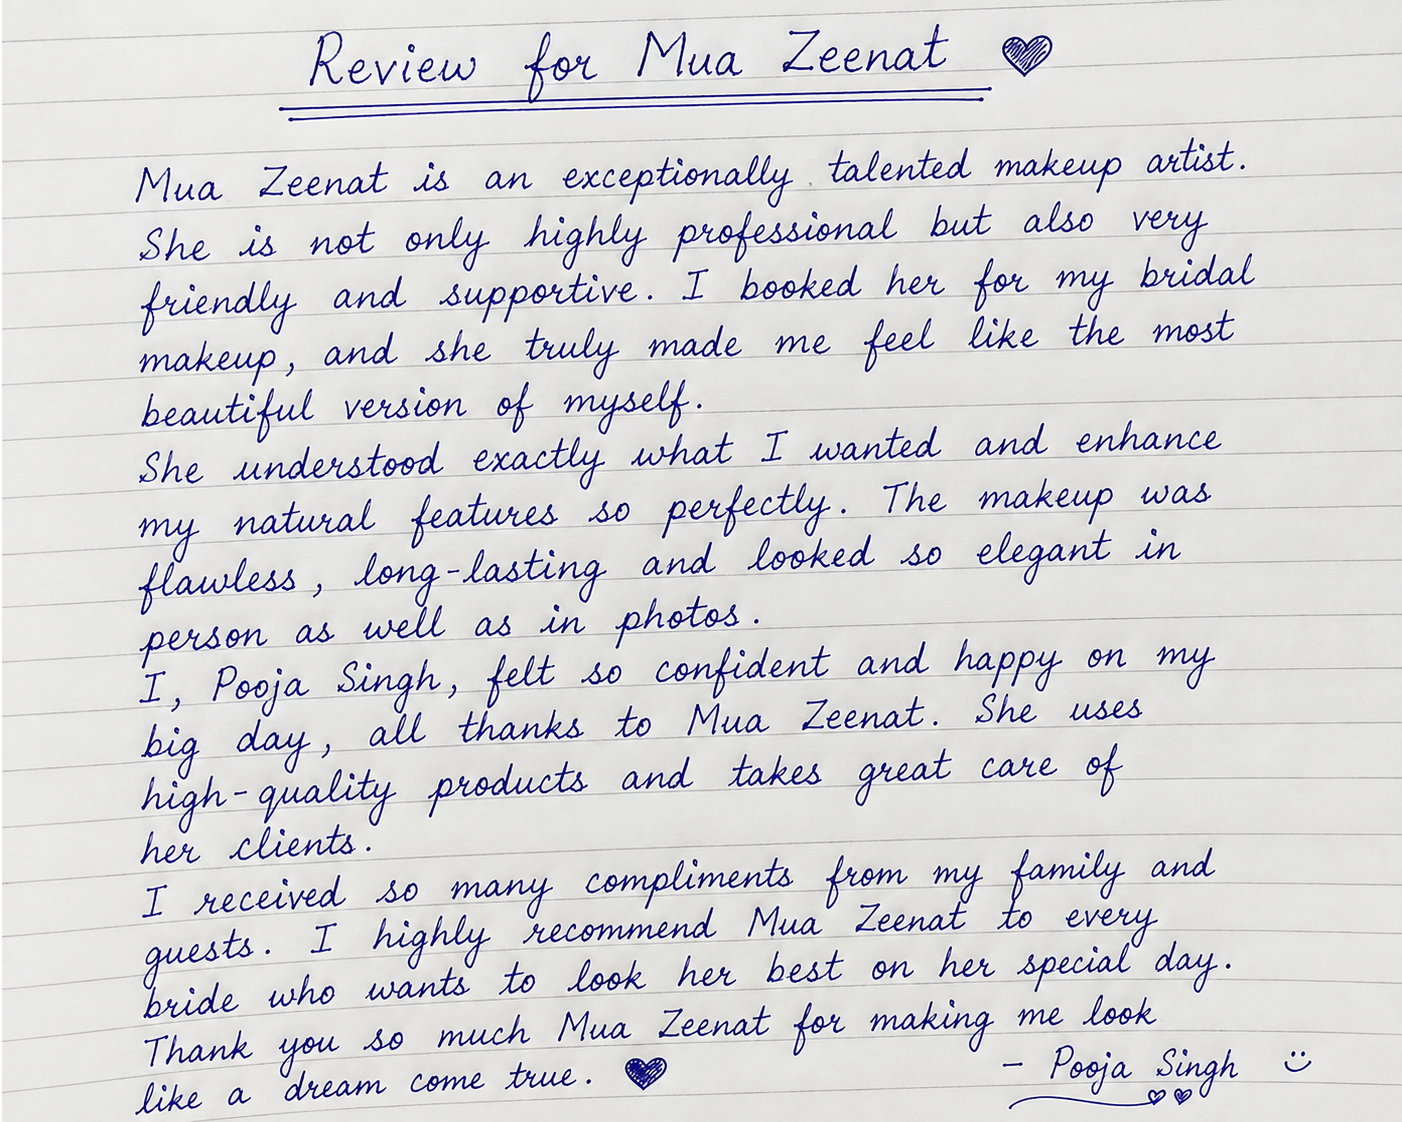 Review for Mua Zeenat
Mua Zeenat is an exceptionally talented makeup artist.
She is not only highly professional but also very
friendly and supportive. I booked her for my bridal
makeup, and she truly made me feel like the most
beautiful version of myself.
She understood exactly what I wanted and enhance
my natural features so perfectly. The makeup was
flawless, long-lasting and looked so elegant in
person as well as in photos.
I, Pooja Singh, felt so confident and happy on my
big day, all thanks to Mua Zeenat. She uses
high-quality products and takes great care of
her clients.
I received so many compliments from my family and
guests. I highly recommend Mua Zeenat to every
bride who wants to look her best on her special day.
Thank you so much Mua Zeenat for making me look
like a dream come true.
- Pooja Singh